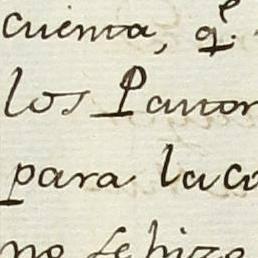 cuenta, q.e
los Pastor
para la co
no se hizo